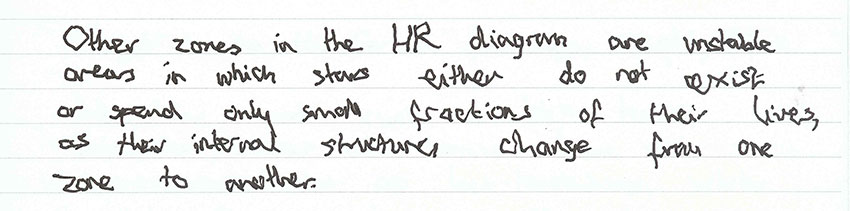 Other zones in the HR diagram are unstable
areas in which stars either do not exist
or spend only small fractions of their lives,
as their internal structures change from one
zone to another.